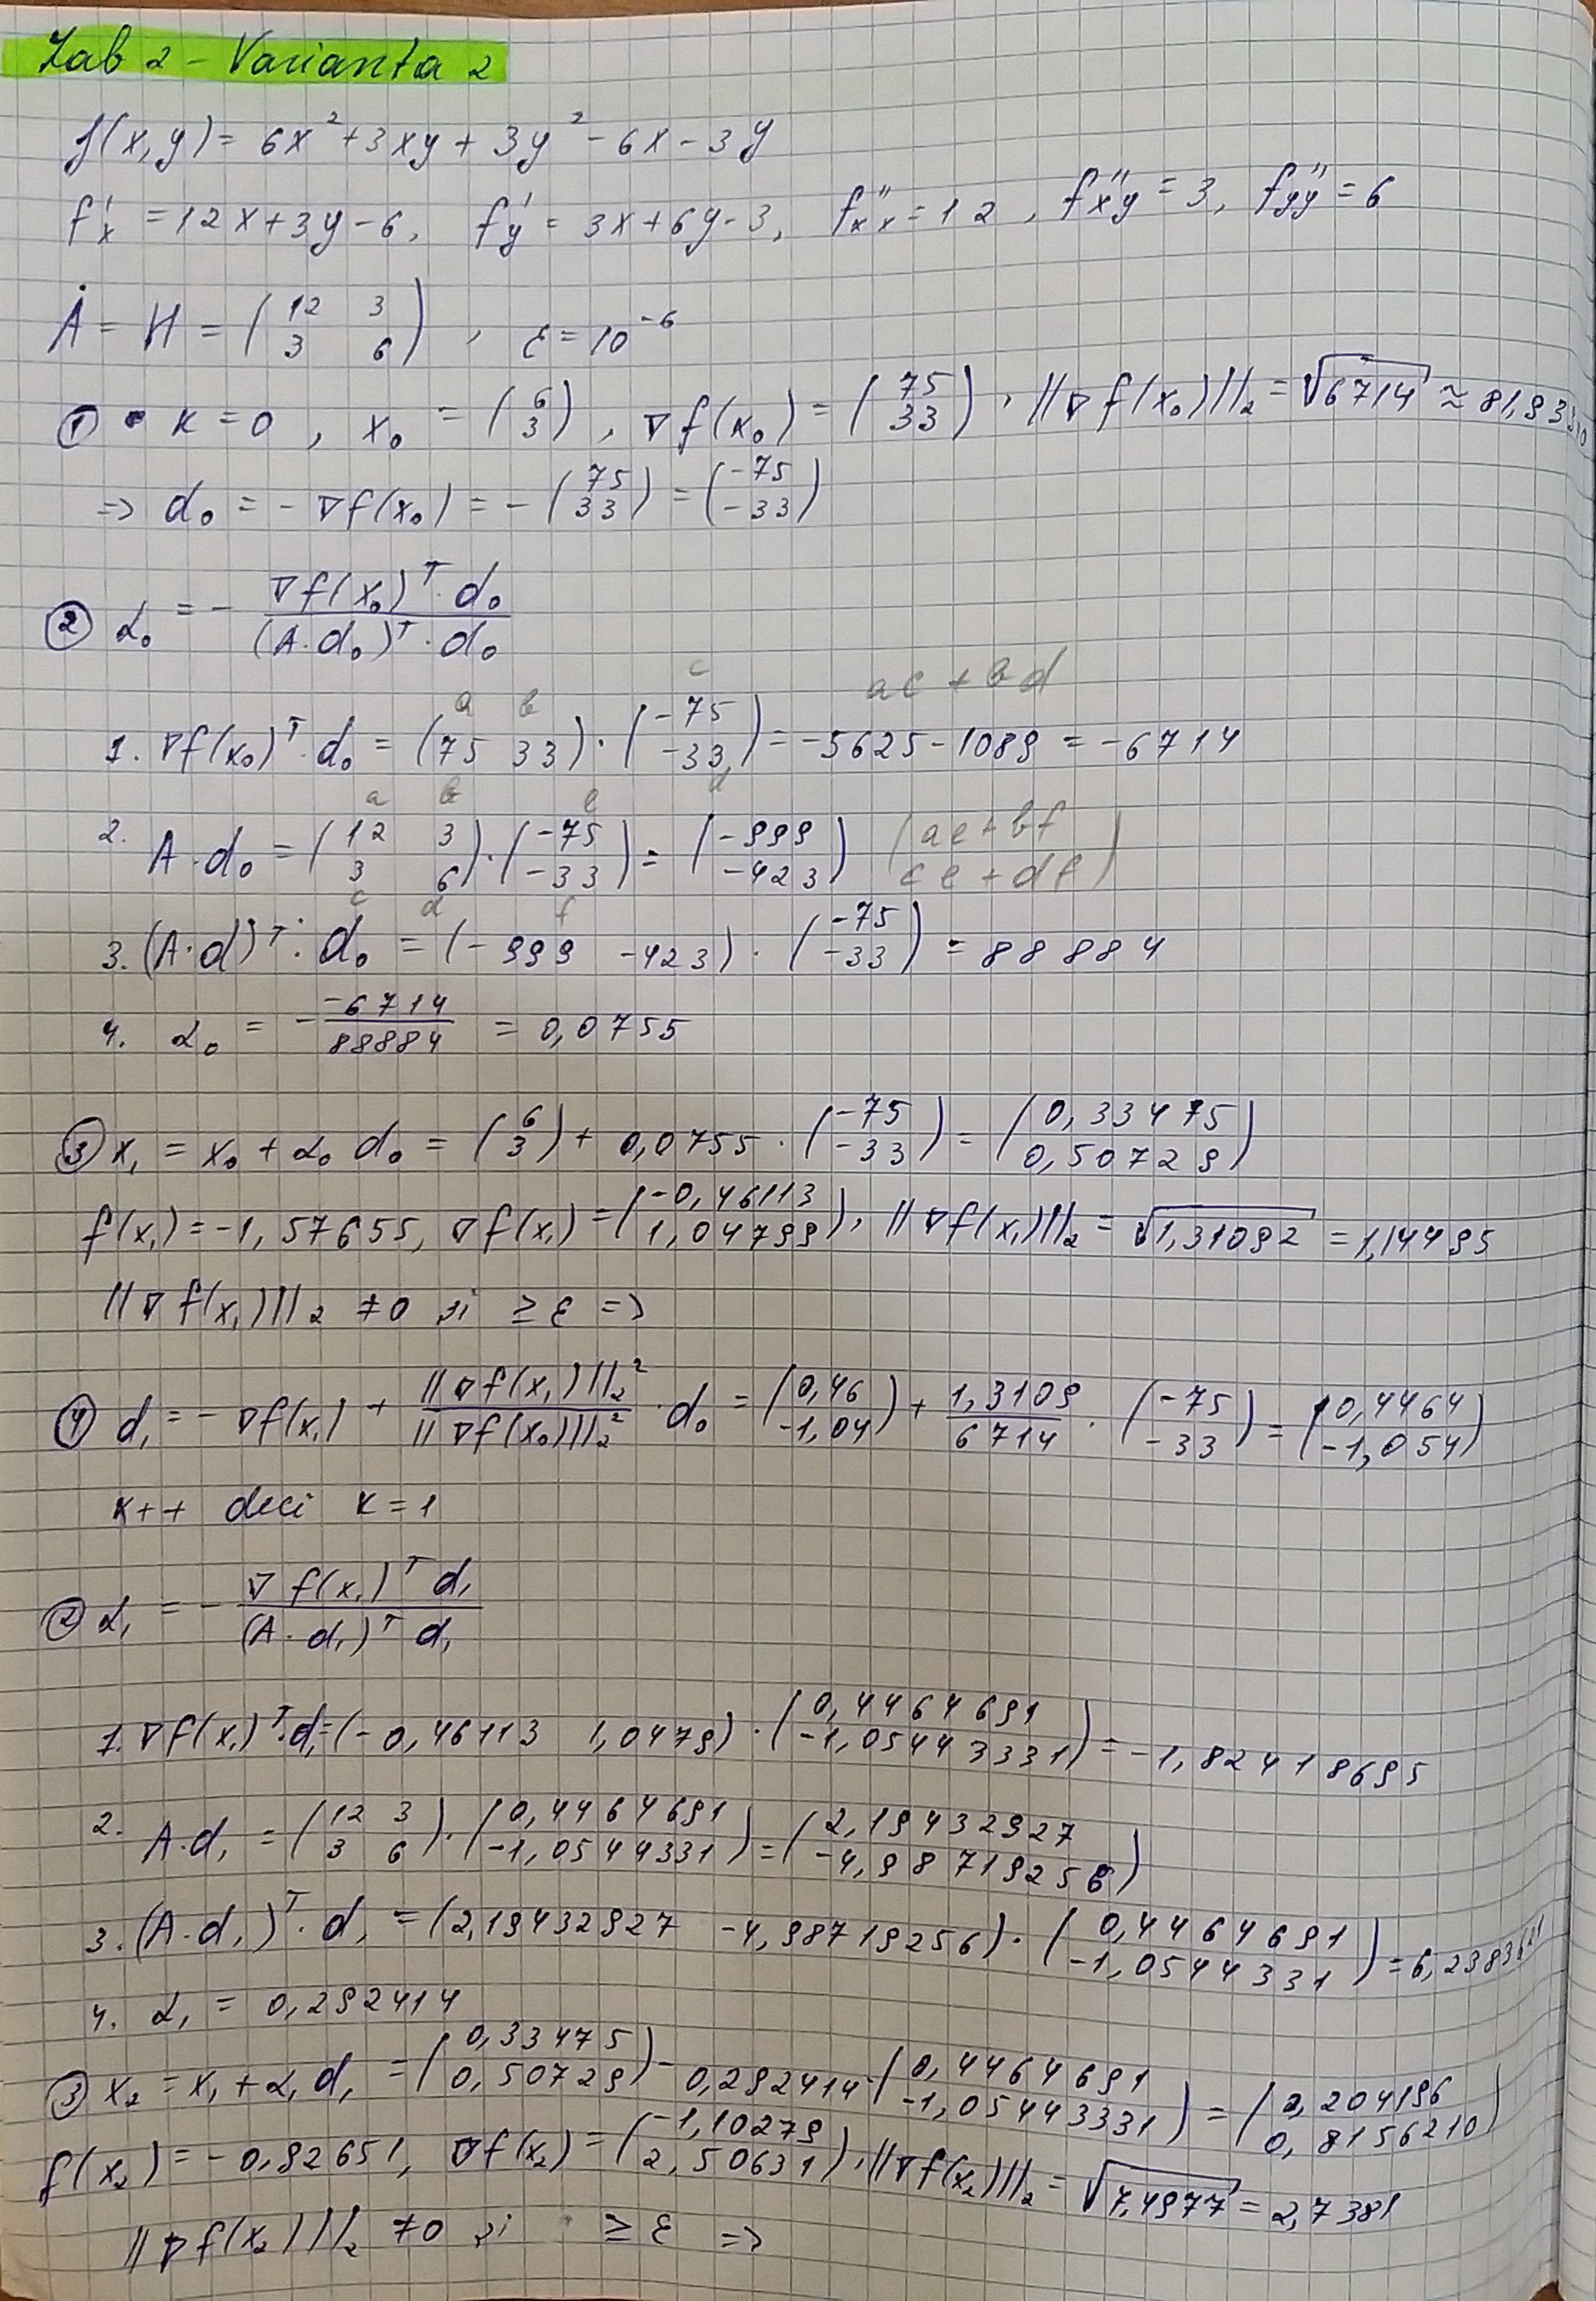 Lab 2 - Varianta 2
f(x,y) = 6x² + 3xy + 3y² - 6x - 3y
f'x = 12x + 3y - 6, f'y = 3x + 6y - 3, f''xx = 12, f''xy = 3, f''yy = 6
A = H = (12 3; 3 6), ε = 10⁻⁶
① • k = 0, x₀ = (6; 3), ∇f(x₀) = (75; 33), ||∇f(x₀)||₂ = √6714 ≈ 81,93
=> d₀ = -∇f(x₀) = -(75; 33) = (-75; -33)
② α₀ = - ∇f(x₀)ᵀ·d₀ / (A·d₀)ᵀ·d₀
a b c ac + bd
1. ∇f(x₀)ᵀ·d₀ = (75 33)·(-75; -33) = -5625 - 1089 = -6714
d
a b e
2. A·d₀ = (12 3; 3 6)·(-75; -33) = (-999; -423) (ae+bf; ce+df)
c d f
3. (A·d)ᵀ·d₀ = (-999 -423)·(-75; -33) = 88884
4. α₀ = - -6714/88884 = 0,0755
③ x₁ = x₀ + α₀ d₀ = (6; 3) + 0,0755·(-75; -33) = (0,33475; 0,50729)
f(x₁) = -1,57655, ∇f(x₁) = (-0,46113; 1,04799), ||∇f(x₁)||₂ = √1,31092 = 1,14495
||∇f(x₁)||₂ ≠ 0 și ≥ ε =>
④ d₁ = -∇f(x₁) + ||∇f(x₁)||₂² / ||∇f(x₀)||₂² · d₀ = (0,46; -1,04) + 1,3109/6714 · (-75; -33) = (0,4464; -1,054)
k++ deci k = 1
② α₁ = - ∇f(x₁)ᵀ d₁ / (A·d₁)ᵀ d₁
1. ∇f(x₁)ᵀ·d₁ = (-0,46113 1,0479)·(0,4464691; -1,05443331) = -1,82418695
2. A·d₁ = (12 3; 3 6)·(0,4464691; -1,0544331) = (2,19432927; -4,98719256)
3. (A·d₁)ᵀ·d₁ = (2,19432927 -4,98719256)·(0,4464691; -1,0544331) = 6,2383
4. α₁ = 0,292414
③ x₂ = x₁ + α₁ d₁ = (0,33475; 0,50729) - 0,292414·(0,4464691; -1,05443331) = (0,204196; 0,8156210)
f(x₂) = -0,92651, ∇f(x₂) = (-1,10279; 2,50631), ||∇f(x₂)||₂ = √7,4977 = 2,7381
||∇f(x₂)||₂ ≠ 0 și ≥ ε =>